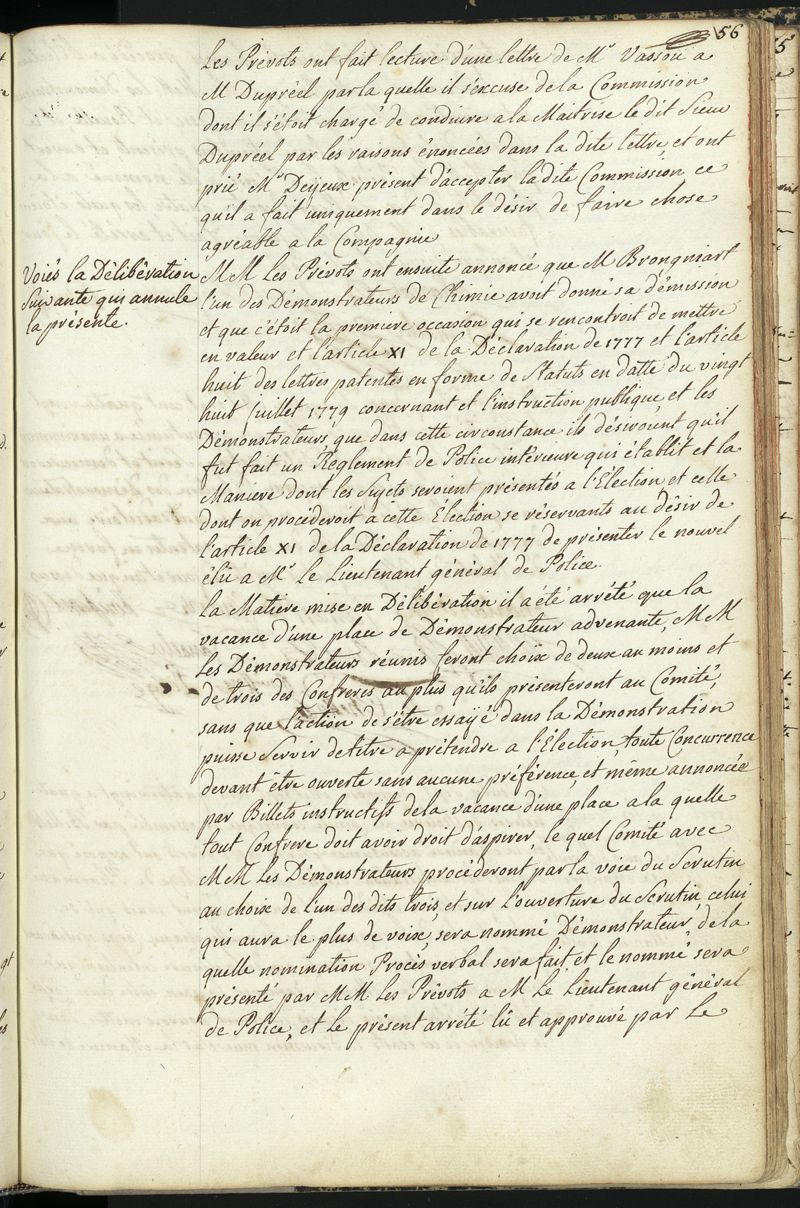 56
Les Prévots ont fait lecture d'une lettre de Mr Vassou a
M Dupréel par la quelle il s'éxcuse de la Commission
dont il s'étoit chargé de conduire a la Maitrise le dit Sieur
Dupréel par les raisons énoncées dans la dite lettre, et ont
prié Mr Deyeux présent d'accepter la dite Commission ce
qu'il a fait uniquement dans le désir de faire chose
agréable a la Compagnie
Voiés la Délibération
suivante qui annule
la présente.
MM les Prévots ont ensuite annoncé que M Brongniart
l'un des Démonstrateurs de Chimie avoit donné sa démission
et que c'étoit la premiere occasion qui se rencontroit de mettre
en valeur et l'article XI de la Déclaration de 1777 et l'article
huit des lettres patentes en forme de Statuts en datte du vingt
huit Juillet 1779 concernant et l'instruction publique et les
Démonstrateurs, que dans cette circonstance ils désiroient qu'il
fut fait un Reglement de Police intérieure qui établit et la
Maniere dont les Sujets seroient présentés a l'Élection et celle
dont on procéderoit a cette Élection se réservants au désir de
l'article XI de la Déclaration de 1777 de présenter le nouvel
élû a Mr le Lieutenant général de Police.
la Matiere mise en Délibération il a été arrété que la
vacance d'une place de Démonstrateur advenante, MM
les Démonstrateurs réunis feront choix de deux au moins et
de trois des Confreres au plus qu'ils présenteront au Comité,
sans que l'action de s'étre essayé dans la Démonstration
puisse Servir de titre a prétendre a l'Élection toute Concurrence
devant étre ouverte sans aucune préférence, et même annoncée
par Billets instructifs de la vacance d'une place a la quelle
tout Confrere doit avoir droit d'aspirer, le quel Comité avec
MM les Démonstrateurs procéderont par la voie du Scrutin
au choix de l'un des dits trois, et sur l'ouverture du Scrutin celui
qui aura le plus de voix, sera nommé Démonstrateur, de la
quelle nomination Procès verbal sera fait et le nommé sera
présenté par MM les Prévots a M le Lieutenant général
de Police, et le présent arrété lû et approuvé par le